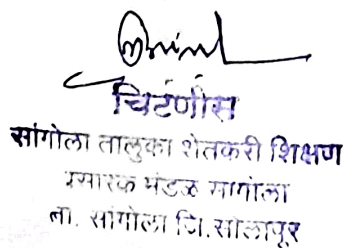 चिटणीस
सांगोला तालुका शेतकरी शिक्षण
प्रसारक मंडळ सांगोला
ता. सांगोला जि. सोलापूर